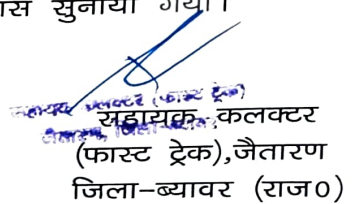 सुनाया गया।
सहायक कलक्टर (फास्ट ट्रेक)
सहायक कलक्टर
(फास्ट ट्रेक),जैतारण
जिला-ब्यावर (राज०)